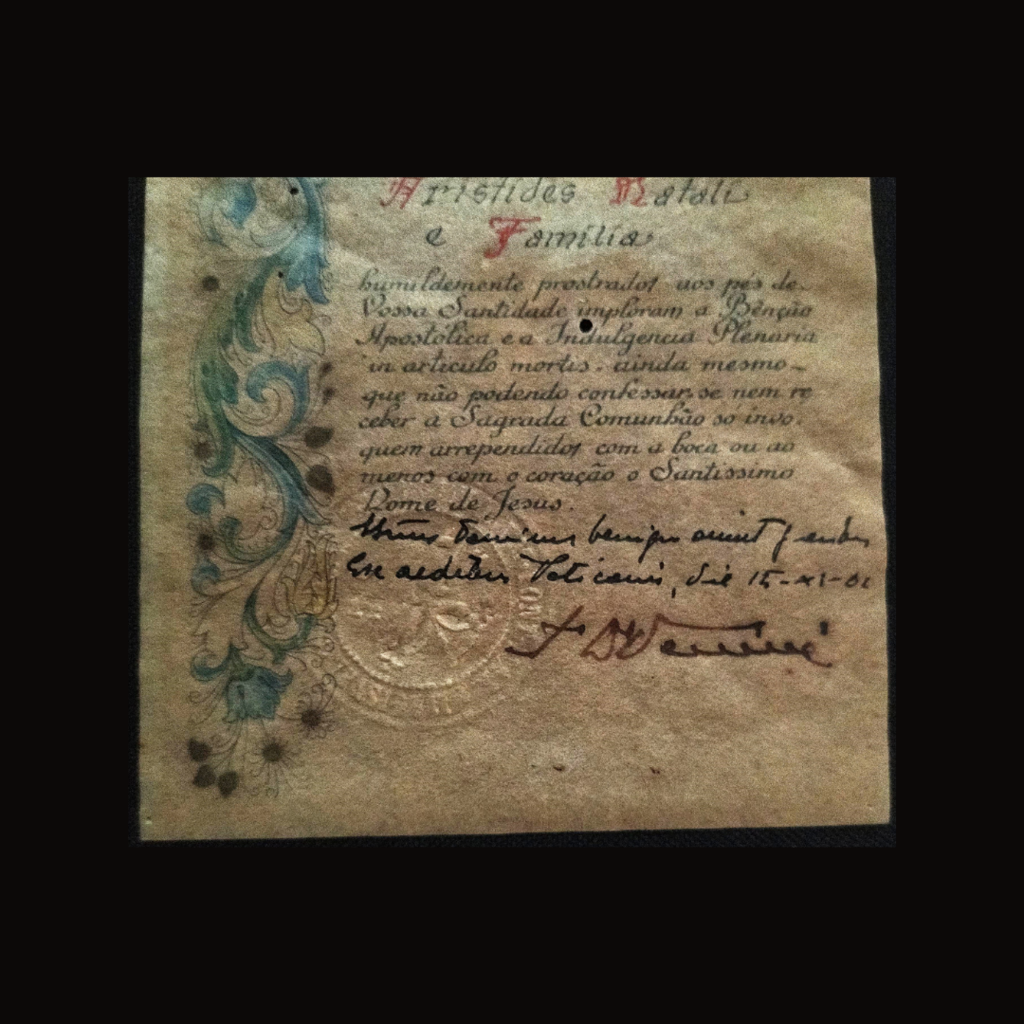 Aristides Natali
e Familia
humildemente prostrados aos pés de
Vossa Santidade imploram a Bênção
Apostólica e a Indulgencia Plenaria
in articulo mortis. ainda mesmo
que não podendo confessar-se nem re
ceber a Sagrada Comunhão so invo.
quem arrependidos com a boca ou ao
menos com o coração o Santissimo
Nome de Jesus.
benigne annuit
Ex aedibus Vaticanis, die 15-XI-